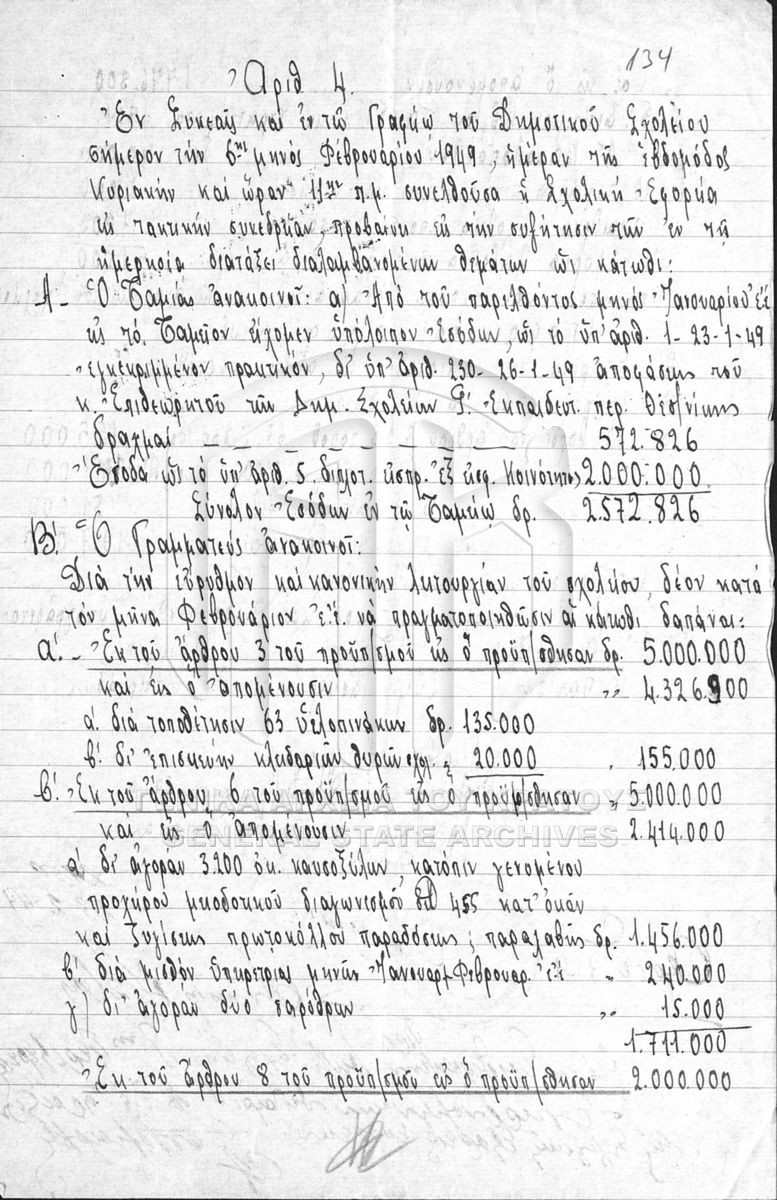 134
Ἀριθ 4.
Ἐν Συκεαῖς καὶ ἐν τῷ Γραφείῳ τοῦ Δημοτικοῦ Σχολείου
σήμερον τὴν 6ην μηνὸς Φεβρουαρίου 1949, ἡμέραν τῆς ἑβδομάδος
Κυριακὴν καὶ ὥραν 11ην π.μ. συνελθοῦσα ἡ Σχολικὴ Ἐφορεία
εἰς τακτικὴν συνεδρίαν, προβαίνει εἰς τὴν συζήτησιν τῶν ἐν τῇ
ἡμερησίᾳ διατάξει διαλαμβανομένων θεμάτων ὡς κάτωθι:
Α- Ὁ Ταμίας ἀνακοινοῖ: α) Ἀπὸ τοῦ παρελθόντος μηνὸς Ἰανουαρίου ἐ.ἔ
εἰς τὸ Ταμεῖον εἴχομεν ὑπόλοιπον Ἐσόδων, ὡς τὸ ὑπ' ἀριθ. 1-23-1-49
ἐγκεκριμμένον πρακτικόν, δι' ὑπ' ἀριθ. 230-26-1-49 ἀποφάσεως τοῦ
κ. Ἐπιθεωρητοῦ τῶν Δημ. Σχολείων Γ' Ἐκπαιδευτ. περ. Θεσ/νίκης
δραγμαὶ — — — — — — 572.826
Ἔσοδα ὡς τὸ ὑπ' ἀριθ. 5. διπλοτ. εἰσπρ. ἐξ εἰσφ. Κοινότητος 2.000.000
Σύνολον Ἐσόδων ἐν τῷ Ταμείῳ δρ. 2.572.826
Β'. Ὁ Γραμματεὺς ἀνακοινοῖ:
Διὰ τὴν εὔρυθμον καὶ κανονικὴν λειτουργίαν τοῦ σχολείου, δέον κατὰ
τὸν μῆνα Φεβρουάριον ἐ.ἔ. νὰ πραγματοποιηθῶσιν αἱ κάτωθι δαπάναι:
α'.- Ἐκ τοῦ ἄρθρου 3 τοῦ προϋπ/σμοῦ εἰς ὃ προϋπ/σθησαν δρ. 5.000.000
καὶ εἰς ὃ ἀπομένουσιν " 4.326.900
α'. διὰ τοποθέτησιν 63 ὑελοπινάκων δρ. 135.000
β'. δι' ἐπισκευὴν κλειδαριῶν θυρῶν σχολ. " 20.000 " 155.000
β'. Ἐκ τοῦ ἄρθρου 6 τοῦ προϋπ/σμοῦ εἰς ὃ προϋπ/σθησαν " 5.000.000
καὶ εἰς ὃ ἀπομένουσιν 2.414.000
α' δι' ἀγορὰν 3.200 ὀκ. καυσοξύλων, κατόπιν γενομένου
προχείρου μειοδοτικοῦ διαγωνισμοῦ 455 κατ' ὀκᾶν
καὶ ζυγίσεως πρωτοκόλλου παραδόσεως & παραλαβῆς δρ. 1.456.000
β'. διὰ μισθὸν ὑπηρετρίας μηνὸς Ἰανουαρ. & Φεβρουαρ. ἐ.ἔ " 240.000
γ) δι' ἀγορὰν δύο σαρόθρων " 15.000
1.711.000
Ἐκ τοῦ ἄρθρου 8 τοῦ προϋπ/σμοῦ εἰς ὃ προϋπ/σθησαν 2.000.000
ΓΕΝΙΚΑ ΑΡΧΕΙΑ ΤΟΥ ΚΡΑΤΟΥΣ
GENERAL STATE ARCHIVES